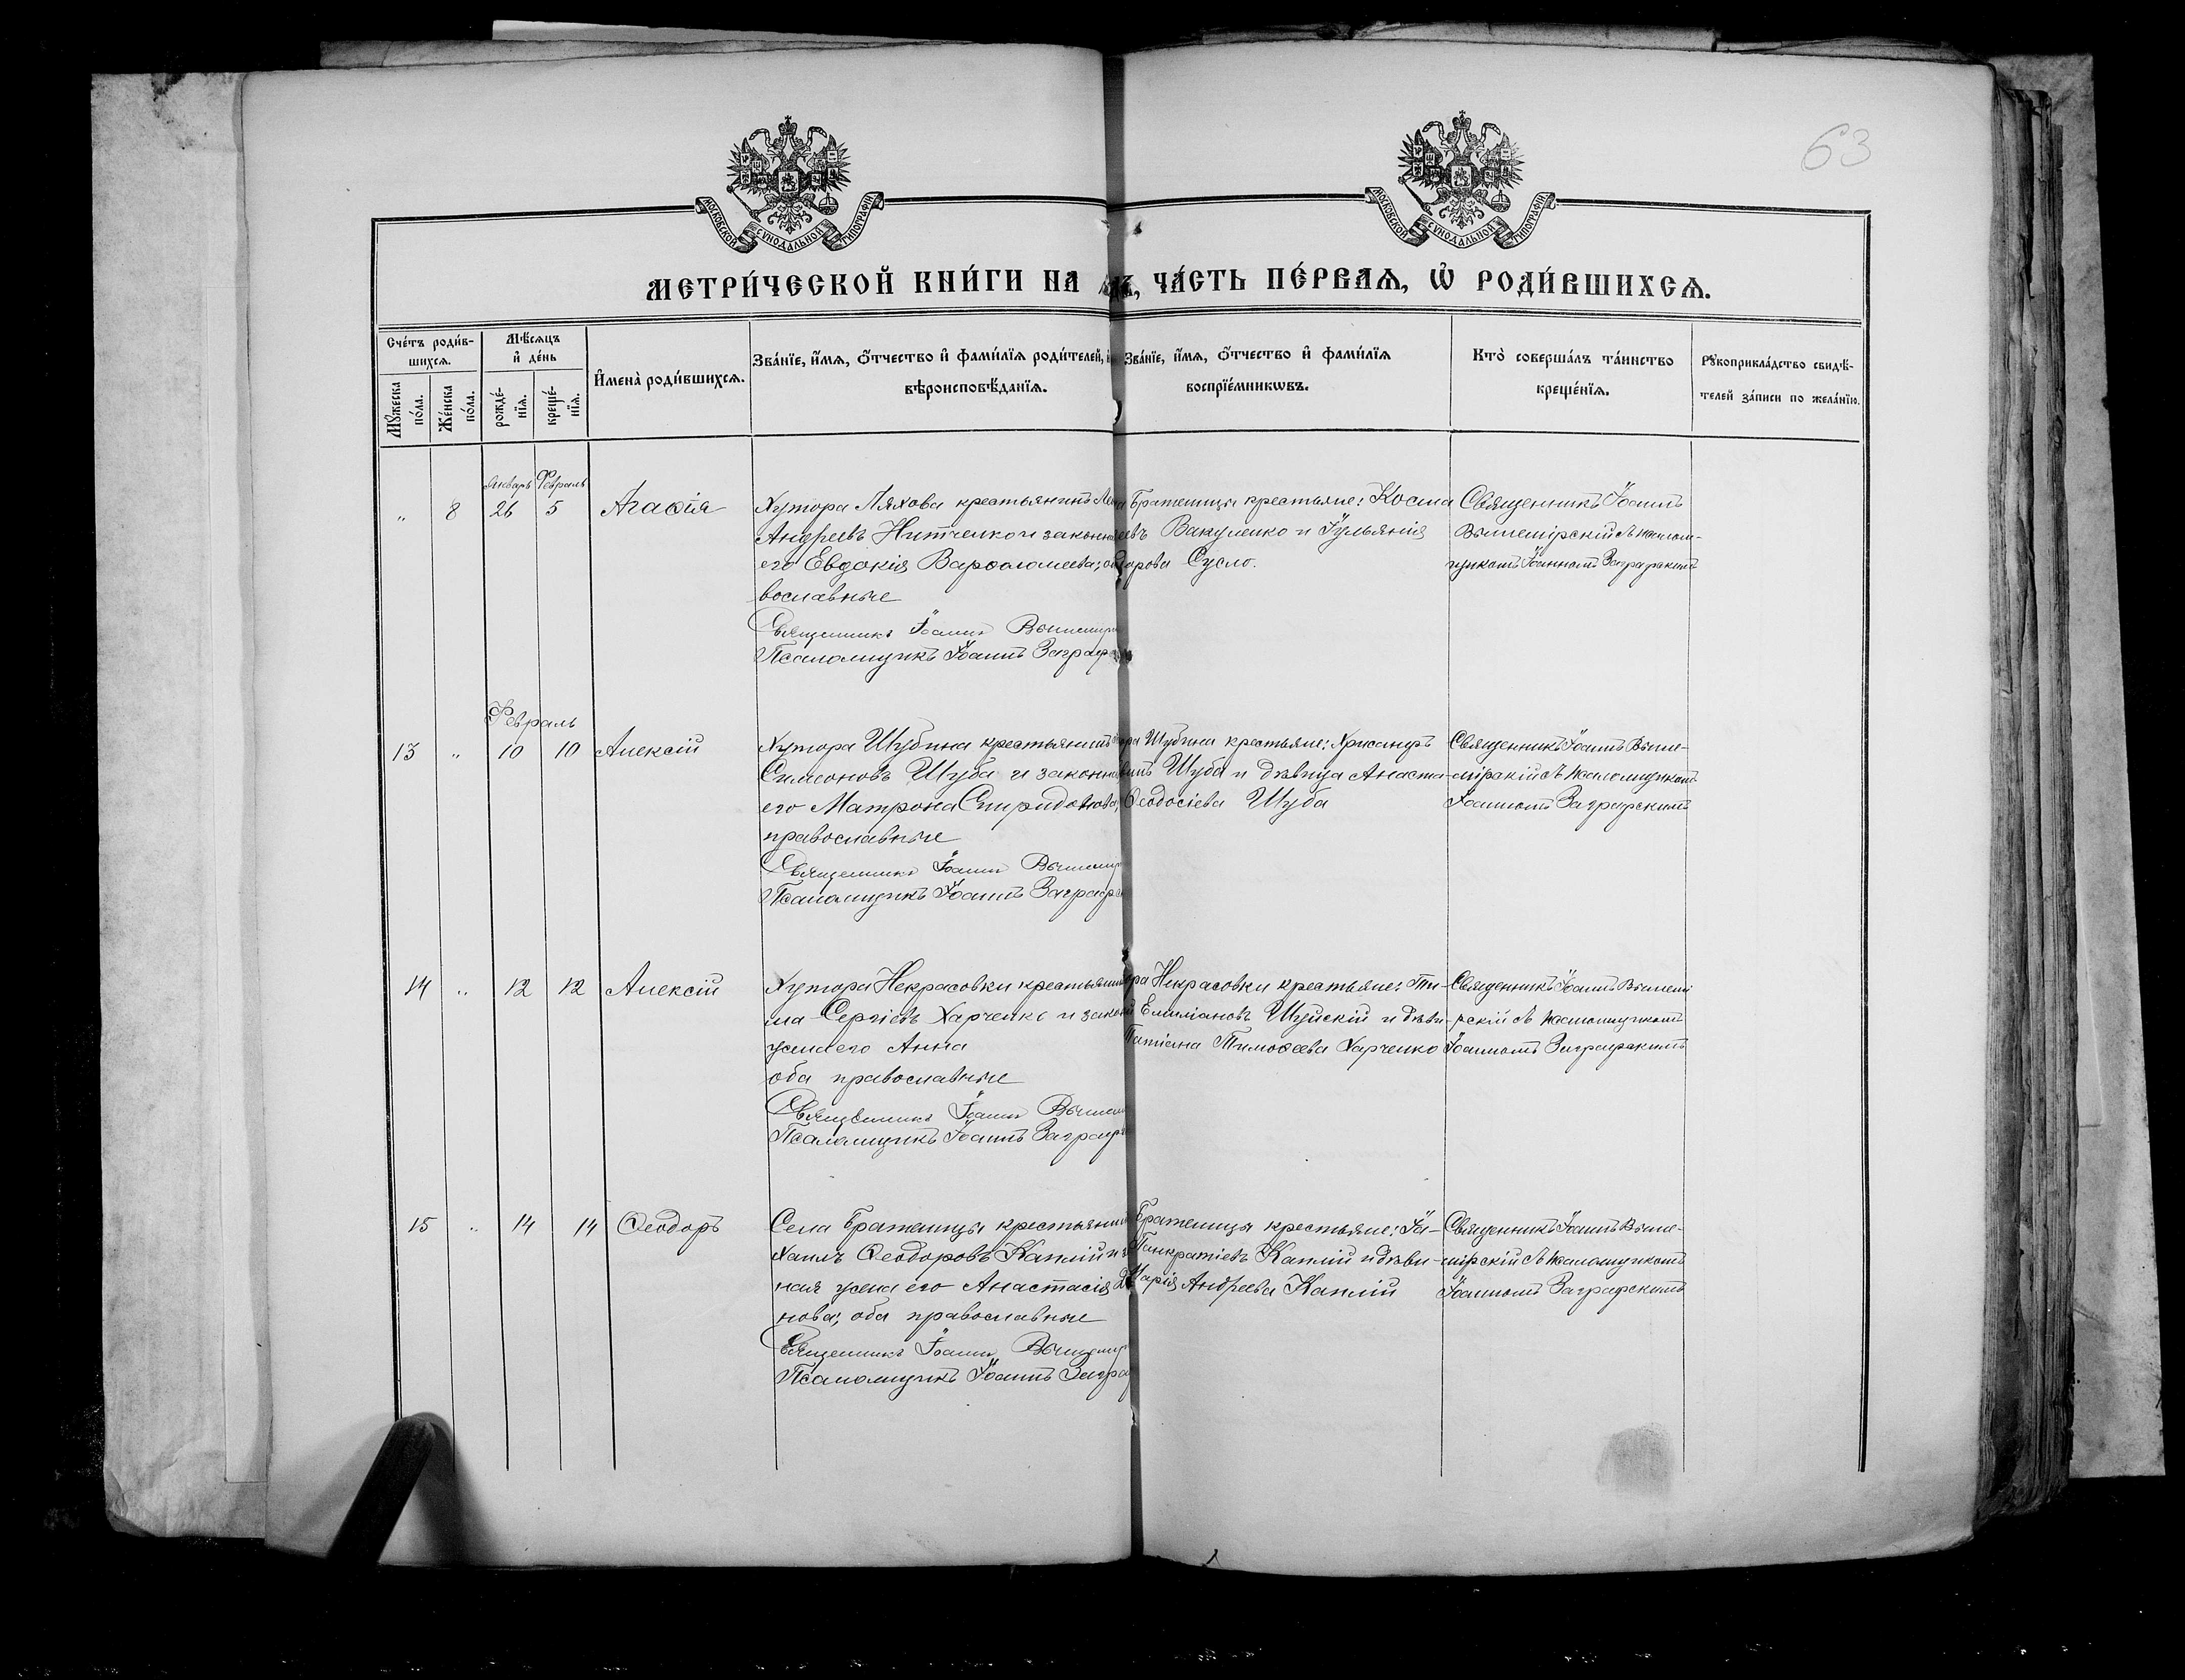 63
МОСКОВСКОЙ СУНОДАЛЬНОЙ ТИПОГРАФІИ
МОСКОВСКОЙ СУНОДАЛЬНОЙ ТИПОГРАФІИ
МЕТРИ́ЧЕСКОЙ КНИ́ГИ НА
ЧА́СТЬ ПЕ́РВАЯ, Ѡ҆ РОДИ́ВШИХСЯ.
Сче́тъ роди́в-
шихся.
Мѣ́сяцъ
и҆ де́нь
Му́жеска
по́ла.
Же́нска
по́ла.
рожде́-
нїя.
креще́-
нїя.
И҆мена̀ роди́вшихся.
Зва́нїе, и҆́мя, ѻ҆́тчество и҆ фами́лїя роди́телей,
вѣроисповѣ́данїя.
Зва́нїе, и҆́мя, ѻ҆́тчество и҆ фами́лїя
воспрїе́мникѡвъ.
Кто̀ соверша́лъ та́инство
креще́нїя.
Рꙋкоприкла́дство свидѣ́-
телей за́писи по жела́нїю.
Январь Февраль
„ 8 26 5 Агаѳія
Хутора Ляхова крестьянинъ
Андреевъ Нитченко и законн
его Евдокія Варѳоломеева;
вославные
Священникъ Іоаннъ Вышемір
Псаломщикъ Іоаннъ Заграф
Братеницы крестьяне: Косма
евъ Вакуленко и Іульянія
дорова Сусло.
Священникъ Іоаннъ
Вышемірскій съ псалом-
щикомъ Іоанномъ Заграфскимъ
Февраль
13 „ 10 10 Алексій
Хутора Шубина крестьянинъ
Симеоновъ Шуба и законна
его Матрона Спиридонова,
православные
Священникъ Іоаннъ Вышемір
Псаломщикъ Іоаннъ Заграфс
ора Шубина крестьяне: Хрисанфъ
Шуба и дѣвица Анаста-
Ѳеодосіева Шуба
Священникъ Іоаннъ Выше-
мірскій съ псаломщикомъ
Іоанномъ Заграфскимъ
14 „ 12 12 Алексій
Хутора Некрасовки крестьянин
ма Сергіевъ Харченко и закон
жена его Анна
оба православные
Священникъ Іоаннъ Вышем
Псаломщикъ Іоаннъ Заграф
ора Некрасовки крестьяне: Ти-
Емиліановъ Шуйскій и дѣви-
Татіана Тимоѳеева Харченко
Священникъ Іоаннъ Вышемі
рскій съ псаломщикомъ
Іоанномъ Заграфскимъ
15 „ 14 14 Ѳеодоръ
Села Братеницы крестьянин
хаилъ Ѳеодоровъ Каплій и з
ная жена его Анастасія
нова; оба православные
Священникъ Іоаннъ Вышемір
Псаломщикъ Іоаннъ Загра
Братеницы крестьяне:
Панкратіевъ Каплій и дѣви-
Марія Андреева Каплій
Священникъ Іоаннъ Выше-
мірскій съ псаломщикомъ
Іоанномъ Заграфскимъ